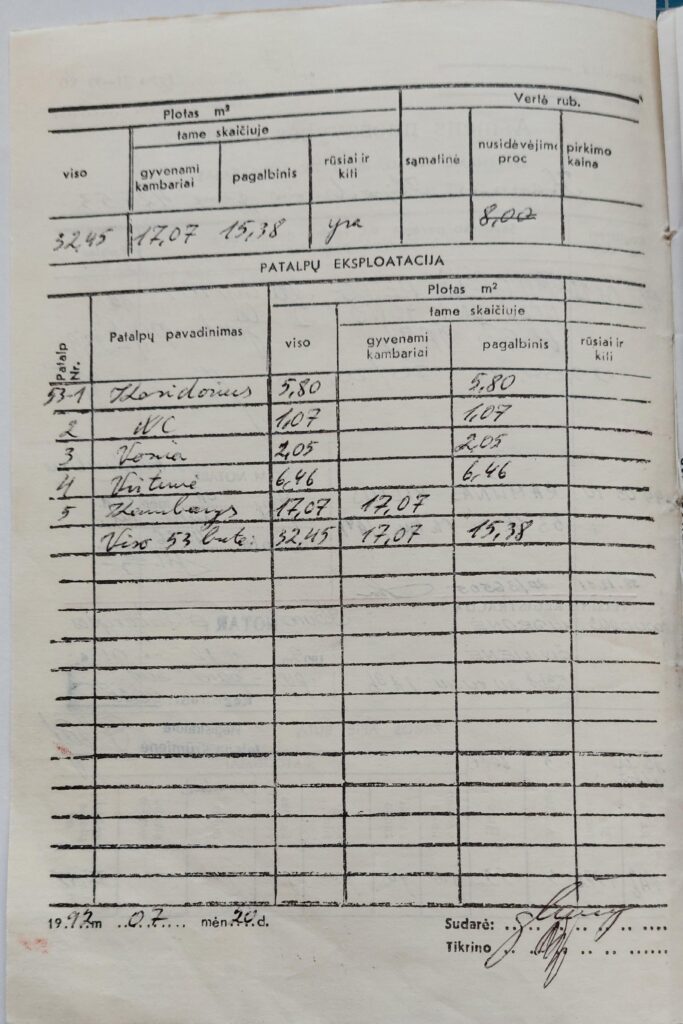 Plotas m² Vertė rub.
tame skaičiuje
viso gyvenami kambariai pagalbinis rūsiai ir kiti sąmatinė nusidėvėjimo proc pirkimo kaina
32,45 17,07 15,38 yra 8,00
PATALPŲ EKSPLOATACIJA
Plotas m²
tame skaičiuje
Patalp Nr. Patalpų pavadinimas viso gyvenami kambariai pagalbinis rūsiai ir kiti
53-1 Koridorius 5,80 5,80
2 WC 1,07 1,07
3 Vonia 2,05 2,05
4 Virtuvė 6,46 6,46
5 Kambarys 17,07 17,07
Viso 53 bute: 32,45 17,07 15,38
1992 m 07 mėn. 20 d. Sudarė:
Tikrino